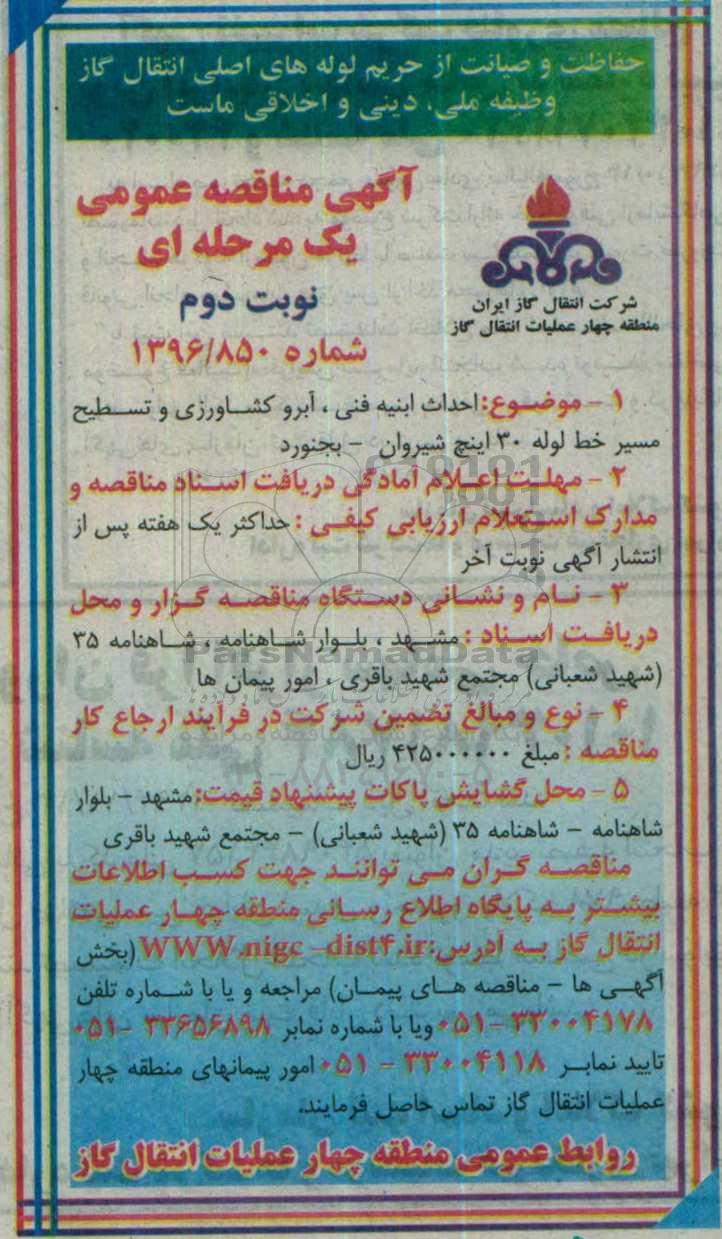 حفاظت و صیانت از حریم لوله های اصلی انتقال گاز
وظیفه ملی، دینی و اخلاقی ماست
آگهی مناقصه عمومی
یک مرحله ای
نوبت دوم
شماره ۱۳۹۶/۸۵۰
شرکت انتقال گاز ایران
منطقه چهار عملیات انتقال گاز
۱ - موضوع: احداث ابنیه فنی ، آبرو کشاورزی و تسطیح
مسیر خط لوله ۳۰ اینچ شیروان - بجنورد
۲ - مهلت اعلام آمادگی دریافت اسناد مناقصه و
مدارک استعلام ارزیابی کیفی : حداکثر یک هفته پس از
انتشار آگهی نوبت آخر
۳ - نام و نشانی دستگاه مناقصه گزار و محل
دریافت اسناد : مشهد ، بلوار شاهنامه ، شاهنامه ۳۵
(شهید شعبانی) مجتمع شهید باقری ، امور پیمان ها
ParsNamadData
۴ - نوع و مبالغ تضمین شرکت در فرآیند ارجاع کار
مناقصه : مبلغ ۴۲۵۰۰۰۰۰۰ ریال
۵ - محل گشایش پاکات پیشنهاد قیمت: مشهد - بلوار
شاهنامه - شاهنامه ۳۵ (شهید شعبانی) - مجتمع شهید باقری
مناقصه گران می توانند جهت کسب اطلاعات
بیشتر به پایگاه اطلاع رسانی منطقه چهار عملیات
انتقال گاز به آدرس: WWW.nigc -dist۴.ir (بخش
آگهی ها - مناقصه های پیمان) مراجعه و یا با شماره تلفن
۳۳۰۰۴۱۷۸ - ۰۵۱ ویا با شماره نمابر ۳۳۶۵۶۸۹۸ - ۰۵۱
تایید نمابر ۳۳۰۰۴۱۱۸ - ۰۵۱ امور پیمانهای منطقه چهار
عملیات انتقال گاز تماس حاصل فرمایند.
روابط عمومی منطقه چهار عملیات انتقال گاز